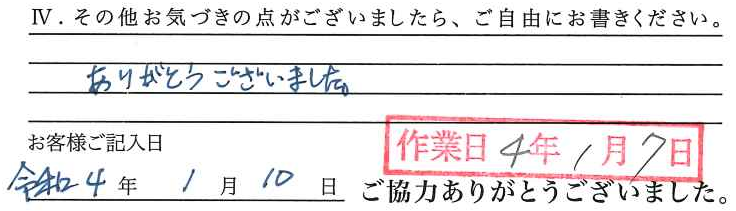 Ⅳ．その他お気づきの点がございましたら、ご自由にお書きください。
ありがとうございました。
お客様ご記入日
作業日 4年 1月 7日
令和4年 1月 10日
ご協力ありがとうございました。